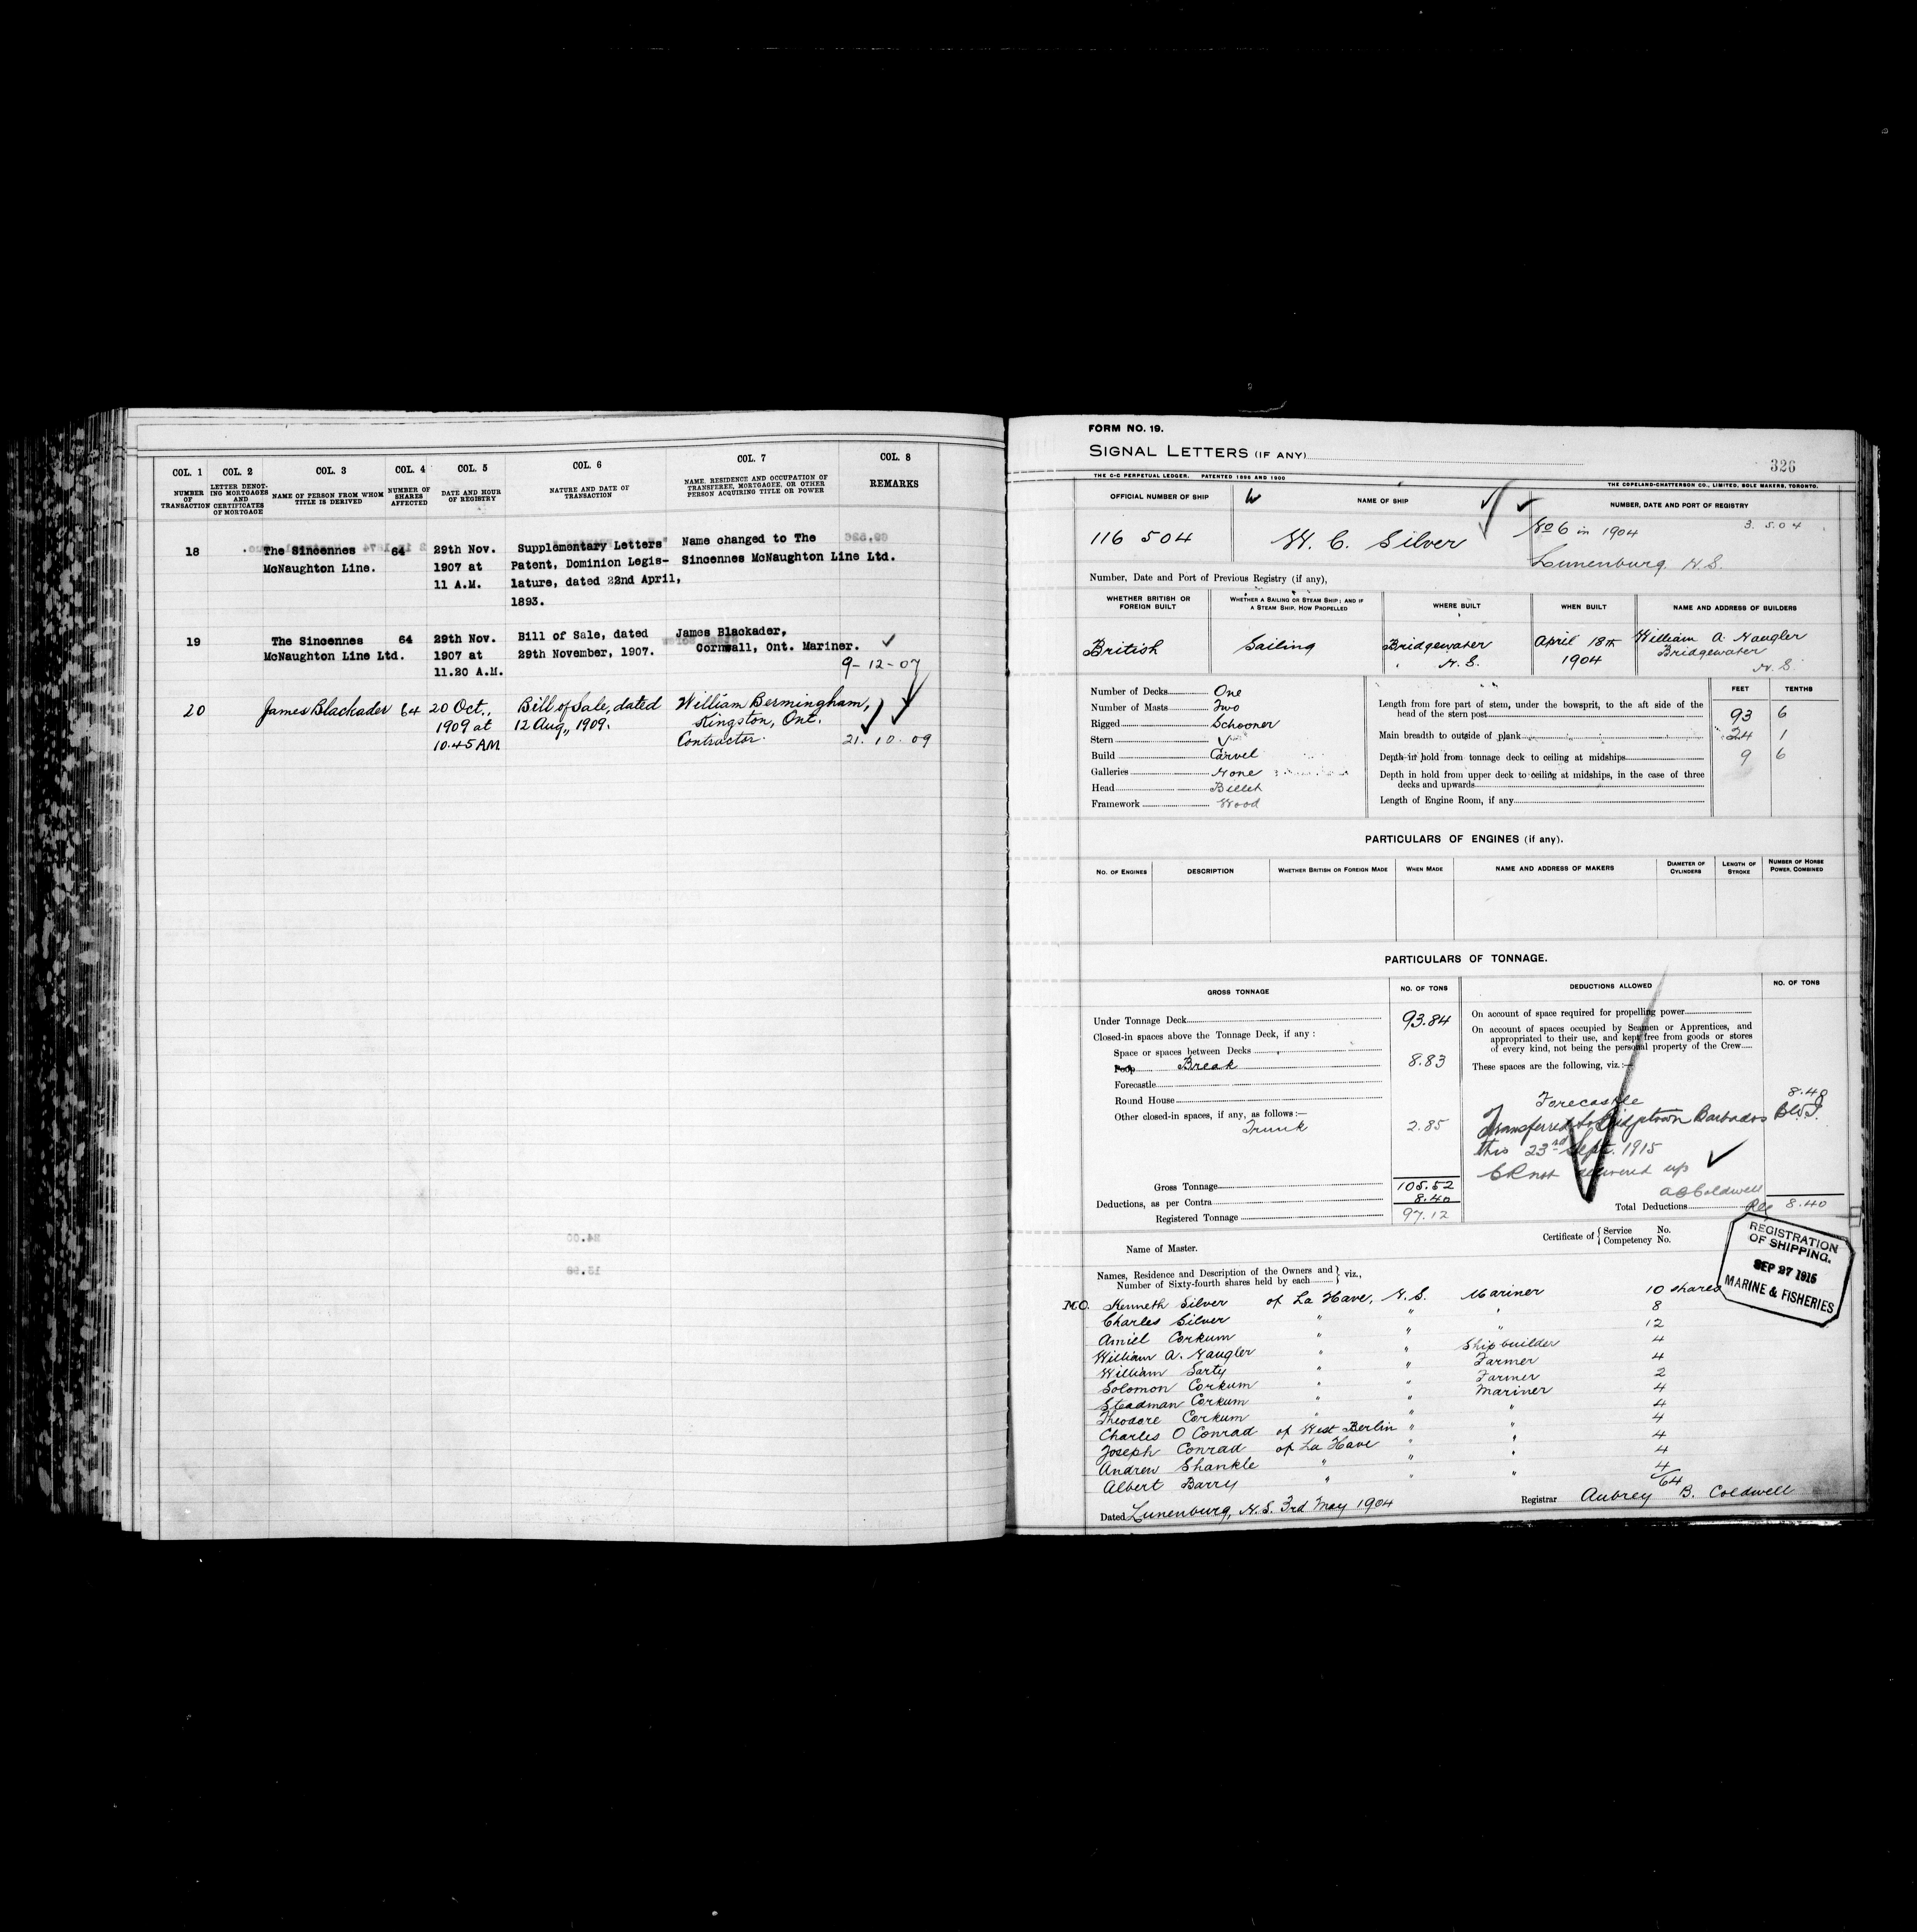 COL. 1 COL. 2 COL. 3 COL. 4 COL. 5 COL. 6 COL. 7 COL. 8
NUMBER OF TRANSACTION
LETTER DENOTING MORTGAGES AND CERTIFICATES OF MORTGAGE
NAME OF PERSON FROM WHOM TITLE IS DERIVED
NUMBER OF SHARES AFFECTED
DATE AND HOUR OF REGISTRY
NATURE AND DATE OF TRANSACTION
NAME, RESIDENCE AND OCCUPATION OF TRANSFEREE, MORTGAGEE, OR OTHER PERSON ACQUIRING TITLE OR POWER
REMARKS
18 The Sincennes 64 29th Nov. Supplementary Letters Name changed to The
McNaughton Line. 1907 at Patent, Dominion Legis- Sincennes McNaughton Line Ltd.
11 A.M. lature, dated 22nd April,
1893.
19 The Sincennes 64 29th Nov. Bill of Sale, dated James Blackader,
McNaughton Line Ltd. 1907 at 29th November, 1907. Cornwall, Ont. Mariner.
11.20 A.M. 9-12-07
20 James Blackader 64 20 Oct., Bill of Sale, dated William Bermingham,
1909 at 12 Aug., 1909. Kingston, Ont.
10.45 AM Contractor. 21.10.09
FORM NO. 19.
SIGNAL LETTERS (IF ANY)
326
THE C-C PERPETUAL LEDGER. PATENTED 1896 AND 1900
THE COPELAND-CHATTERSON CO., LIMITED, SOLE MAKERS, TORONTO.
OFFICIAL NUMBER OF SHIP W NAME OF SHIP NUMBER, DATE AND PORT OF REGISTRY
116 504 W. C. Silver No 6 in 1904 3.5.04
Lunenburg. N.S.
Number, Date and Port of Previous Registry (if any),
WHETHER BRITISH OR FOREIGN BUILT
WHETHER A SAILING OR STEAM SHIP; AND IF A STEAM SHIP, HOW PROPELLED
WHERE BUILT
WHEN BUILT
NAME AND ADDRESS OF BUILDERS
British Sailing Bridgewater April 18th William A. Naugler
N.S. 1904 Bridgewater
N.S.
FEET TENTHS
Number of Decks One
Number of Masts Two
Rigged Schooner
Stern
Build Carvel
Galleries None
Head Billet
Framework Wood
Length from fore part of stem, under the bowsprit, to the aft side of the
head of the stern post 93 6
Main breadth to outside of plank 24 1
Depth in hold from tonnage deck to ceiling at midships 9 6
Depth in hold from upper deck to ceiling at midships, in the case of three
decks and upwards
Length of Engine Room, if any
PARTICULARS OF ENGINES (if any).
NO. OF ENGINES DESCRIPTION WHETHER BRITISH OR FOREIGN MADE WHEN MADE NAME AND ADDRESS OF MAKERS DIAMETER OF CYLINDERS LENGTH OF STROKE NUMBER OF HORSE POWER, COMBINED
PARTICULARS OF TONNAGE.
GROSS TONNAGE NO. OF TONS DEDUCTIONS ALLOWED NO. OF TONS
Under Tonnage Deck 93.84
Closed-in spaces above the Tonnage Deck, if any :
Space or spaces between Decks
Poop Break 8.83
Forecastle
Round House
Other closed-in spaces, if any, as follows :—
Trunk 2.85
Gross Tonnage 105.52
Deductions, as per Contra 8.40
Registered Tonnage 97.12
On account of space required for propelling power
On account of spaces occupied by Seamen or Apprentices, and
appropriated to their use, and kept free from goods or stores
of every kind, not being the personal property of the Crew
These spaces are the following, viz.:—
Forecastle 8.40
Transferred to Bridgetown Barbados B.W.I.
this 23rd Sept. 1915
CR not delivered up
A B Coldwell
Reg
Total Deductions 8.40
Name of Master.
Certificate of { Service No.
Competency No.
REGISTRATION
OF SHIPPING.
SEP 27 1915
MARINE & FISHERIES
Names, Residence and Description of the Owners and } viz.,
Number of Sixty-fourth shares held by each
M.O. Kenneth Silver of La Have, N.S. Mariner 10 shares
Charles Silver " " " 8
Amiel Corkum " " " 12
William A. Naugler " " Shipbuilder 4
William Sarty " " Farmer 4
Solomon Corkum " " Farmer 2
Steadman Corkum " " Mariner 4
Theodore Corkum " " " 4
Charles O Conrad of West Berlin " " 4
Joseph Conrad of La Have " " 4
Andrew Shankle " " " 4
Albert Barry " " " 4
/64
Dated Lunenburg, N.S. 3rd May 1904 Registrar Aubrey B. Coldwell